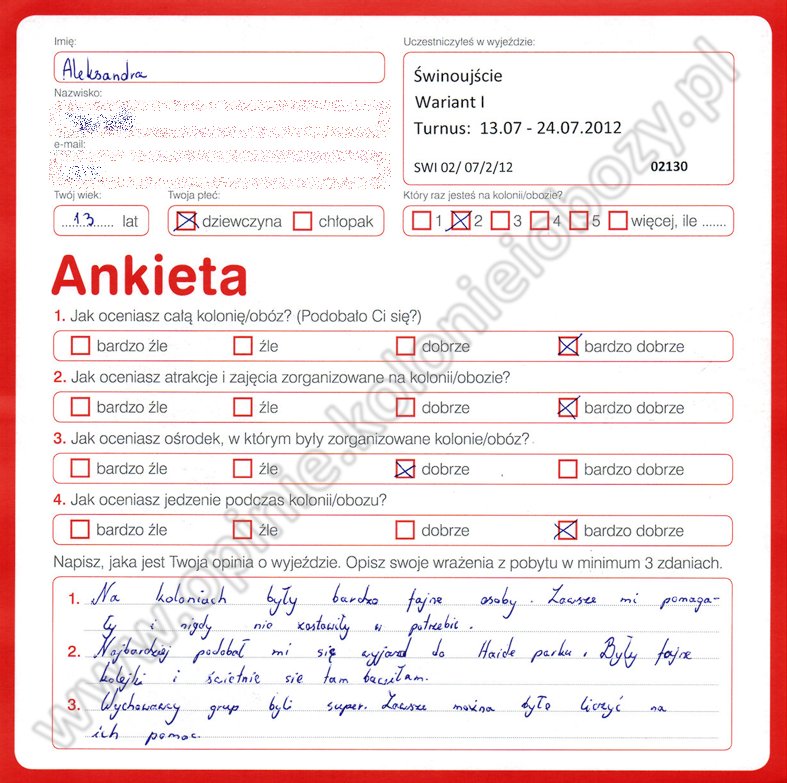 Imię:
Uczestniczyłeś w wyjeździe:
Aleksandra
Świnoujście
Wariant I
Turnus: 13.07 - 24.07.2012
SWI 02/ 07/2/12 02130
Nazwisko:
e-mail:
Twój wiek:
Twoja płeć:
Który raz jesteś na kolonii/obozie?
13 lat
dziewczyna chłopak
1 2 3 4 5 więcej, ile .......
Ankieta
1. Jak oceniasz całą kolonię/obóz? (Podobało Ci się?)
bardzo źle źle dobrze bardzo dobrze
2. Jak oceniasz atrakcje i zajęcia zorganizowane na kolonii/obozie?
bardzo źle źle dobrze bardzo dobrze
3. Jak oceniasz ośrodek, w którym były zorganizowane kolonie/obóz?
bardzo źle źle dobrze bardzo dobrze
4. Jak oceniasz jedzenie podczas kolonii/obozu?
bardzo źle źle dobrze bardzo dobrze
Napisz, jaka jest Twoja opinia o wyjeździe. Opisz swoje wrażenia z pobytu w minimum 3 zdaniach.
1. Na koloniach były bardzo fajne osoby. Zawsze mi pomaga-
ły i nigdy nie zostawiły w potrzebie.
2. Najbardziej podobał mi się wyjazd do Haide parku. Były fajne
kolejki i świetnie sie tam bawiłam.
3. Wychowawcy grup byli super. Zawsze można było liczyć na
ich pomoc.
www.opinie.kolonieiobozy.pl